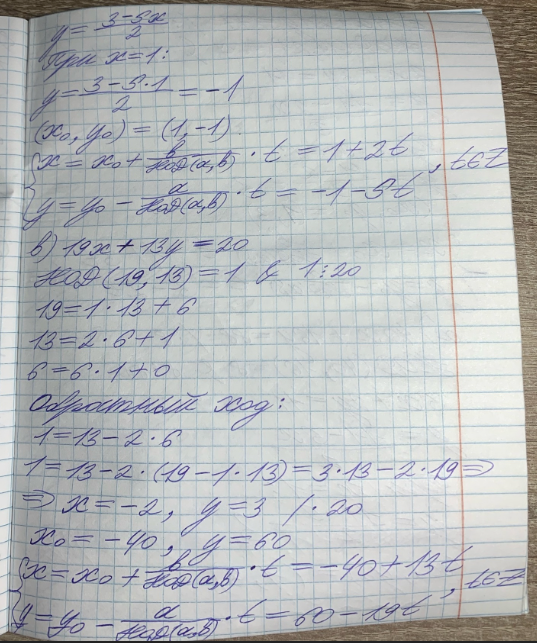 y = (3-5x)/2
При x=1:
y = (3-5·1)/2 = -1
(x₀, y₀) = (1, -1).
{x = x₀ + b/НОД(a,b) · t = 1+2t
{y = y₀ - a/НОД(a,b) · t = -1-5t , t∈Z
в) 19x + 13y = 20
НОД(19, 13) = 1 & 1⋮20
19 = 1·13 + 6
13 = 2·6 + 1
6 = 6·1 + 0
Обратный ход:
1 = 13 - 2·6
1 = 13 - 2·(19 - 1·13) = 3·13 - 2·19 ⇒
⇒ x = -2, y = 3 /·20
x₀ = -40, y = 60
{x = x₀ + b/НОД(a,b) · t = -40+13t
{y = y₀ - a/НОД(a,b) · t = 60-19t , t∈Z